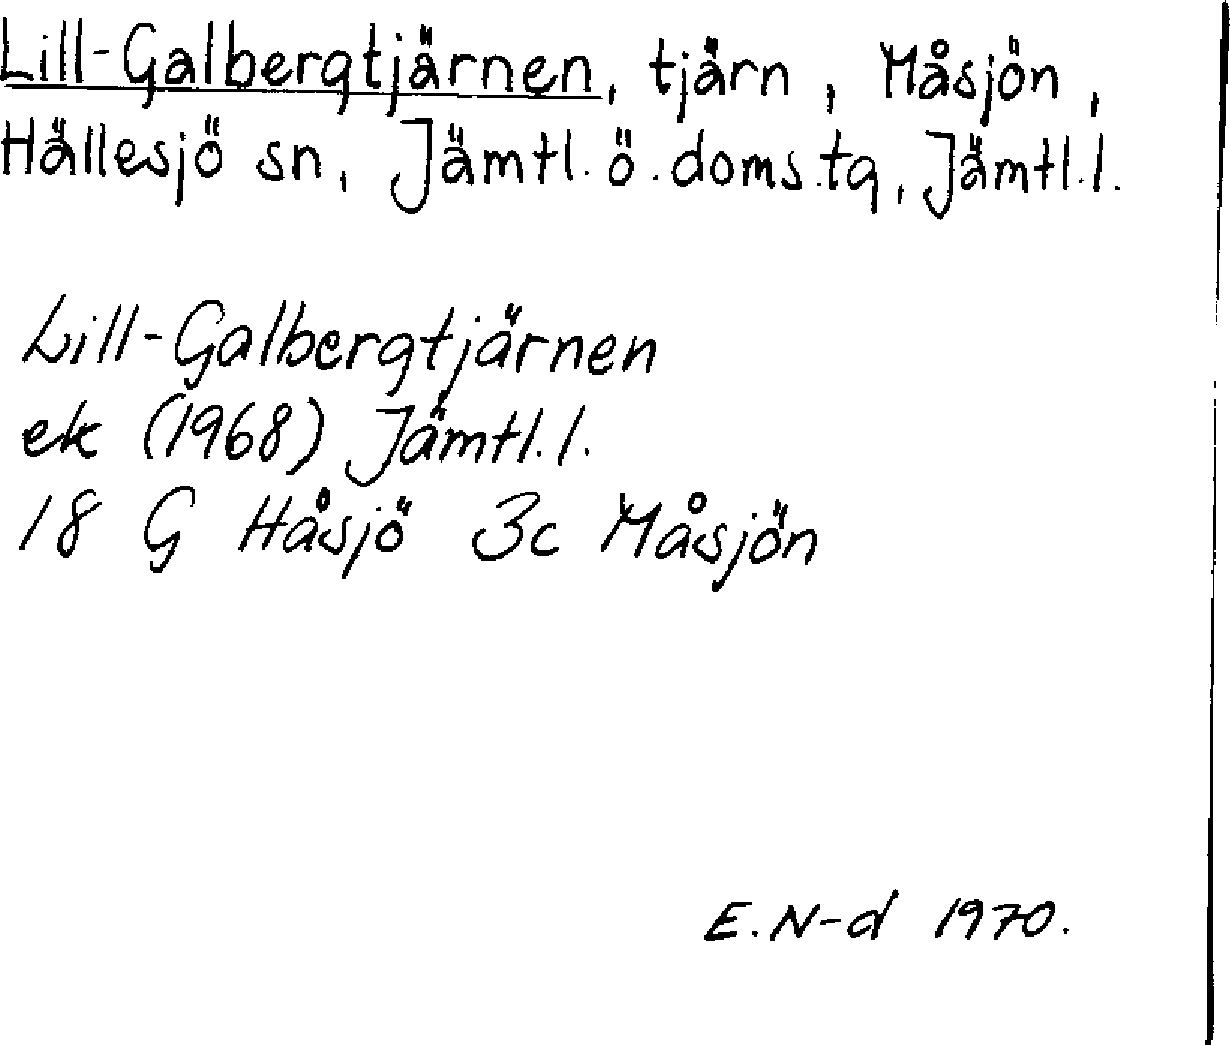 Lill-Galbergtjärnen, tjärn, Måsjön,
Hällesjö sn, Jämtl. ö. doms.tg, Jämtl.l.
Lill-Galbergtjärnen
ek (1968) Jämtl.l.
18 G Håsjö 3c Måsjön
E.N-d 1970.